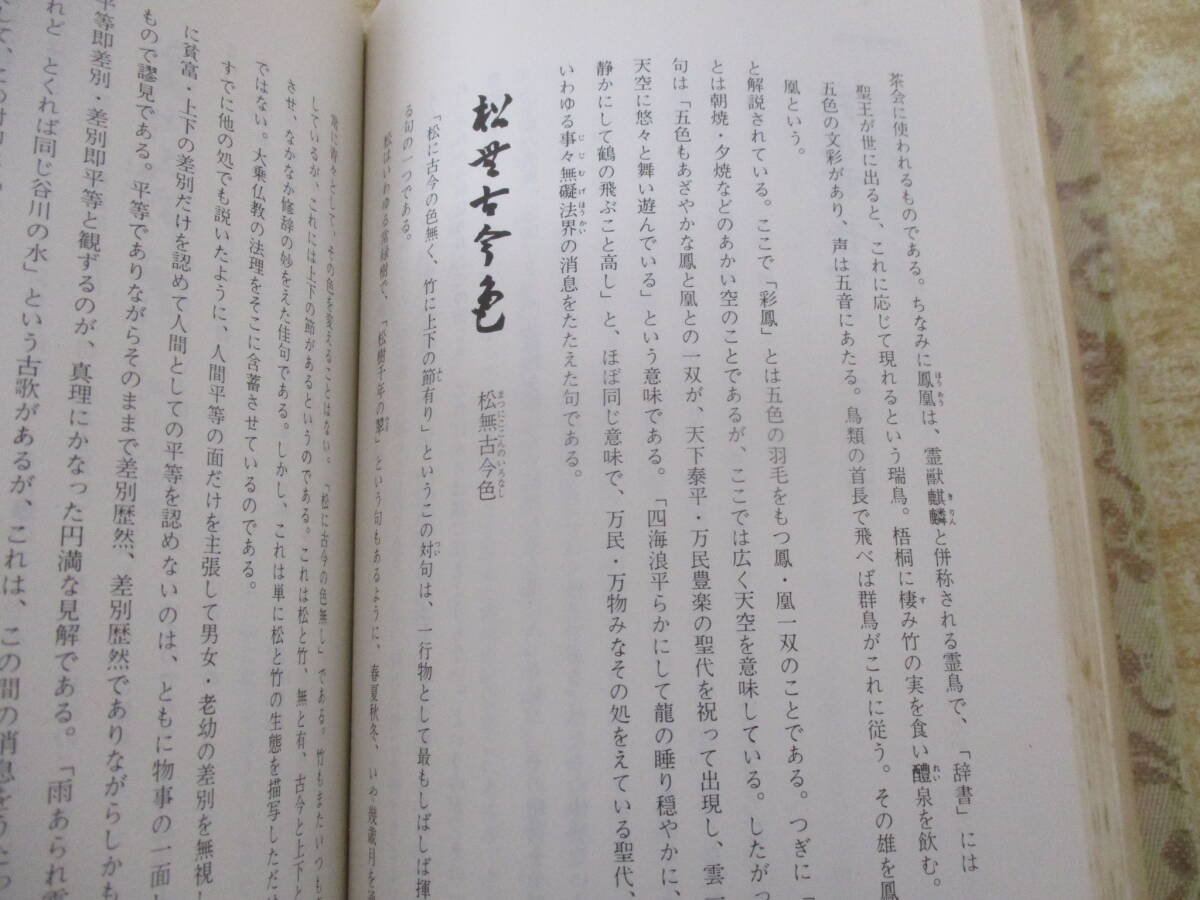 茶会に使われるものである。ちなみに鳳凰は、霊獣麒麟と併称される霊鳥で、「辞書」には
聖王が世に出ると、これに応じて現れるという瑞鳥。梧桐に棲み竹の実を食い醴泉を飲む。
五色の文彩があり、声は五音にあたる。鳥類の首長で飛べば群鳥がこれに従う。その雄を鳳
凰という。
と解説されている。ここで「彩鳳」とは五色の羽毛をもつ鳳・凰一双のことである。つぎに「
とは朝焼・夕焼などのあかい空のことであるが、ここでは広く天空を意味している。したがっ
句は「五色もあざやかな鳳と凰との一双が、天下泰平・万民豊楽の聖代を祝って出現し、雲一
天空に悠々と舞い遊んでいる」という意味である。「四海浪平らかにして龍の睡り穏やかに、
静かにして鶴の飛ぶこと高し」と、ほぼ同じ意味で、万民・万物みなその処をえている聖代、
いわゆる事々無礙法界の消息をたたえた句である。
松無古今色
松無古今色
「松に古今の色無く、竹に上下の節有り」というこの対句は、一行物として最もしばしば揮
る句の一つである。
松はいわゆる常緑樹で、「松樹千年の翠」という句もあるように、春夏秋冬、いや幾歳月を
常に青々として、その色を変えることはない。「松に古今の色無し」である。竹もまたいつも
しているが、これには上下の節があるというのである。これは松と竹、無と有、古今と上下と
させ、なかなか修辞の妙をえた佳句である。しかし、これは単に松と竹の生態を描写しただけ
ではない。大乗仏教の法理をそこに含蓄させているのである。
すでに他の処でも説いたように、人間平等の面だけを主張して男女・老幼の差別を無視し
に貧富・上下の差別だけを認めて人間としての平等を認めないのは、ともに物事の一面し
もので謬見である。平等でありながらそのままで差別歴然、差別歴然でありながらしかも
平等即差別・差別即平等と観ずるのが、真理にかなった円満な見解である。「雨あられ雪
れど とくれば同じ谷川の水」という古歌があるが、これは、この間の消息をうたっ